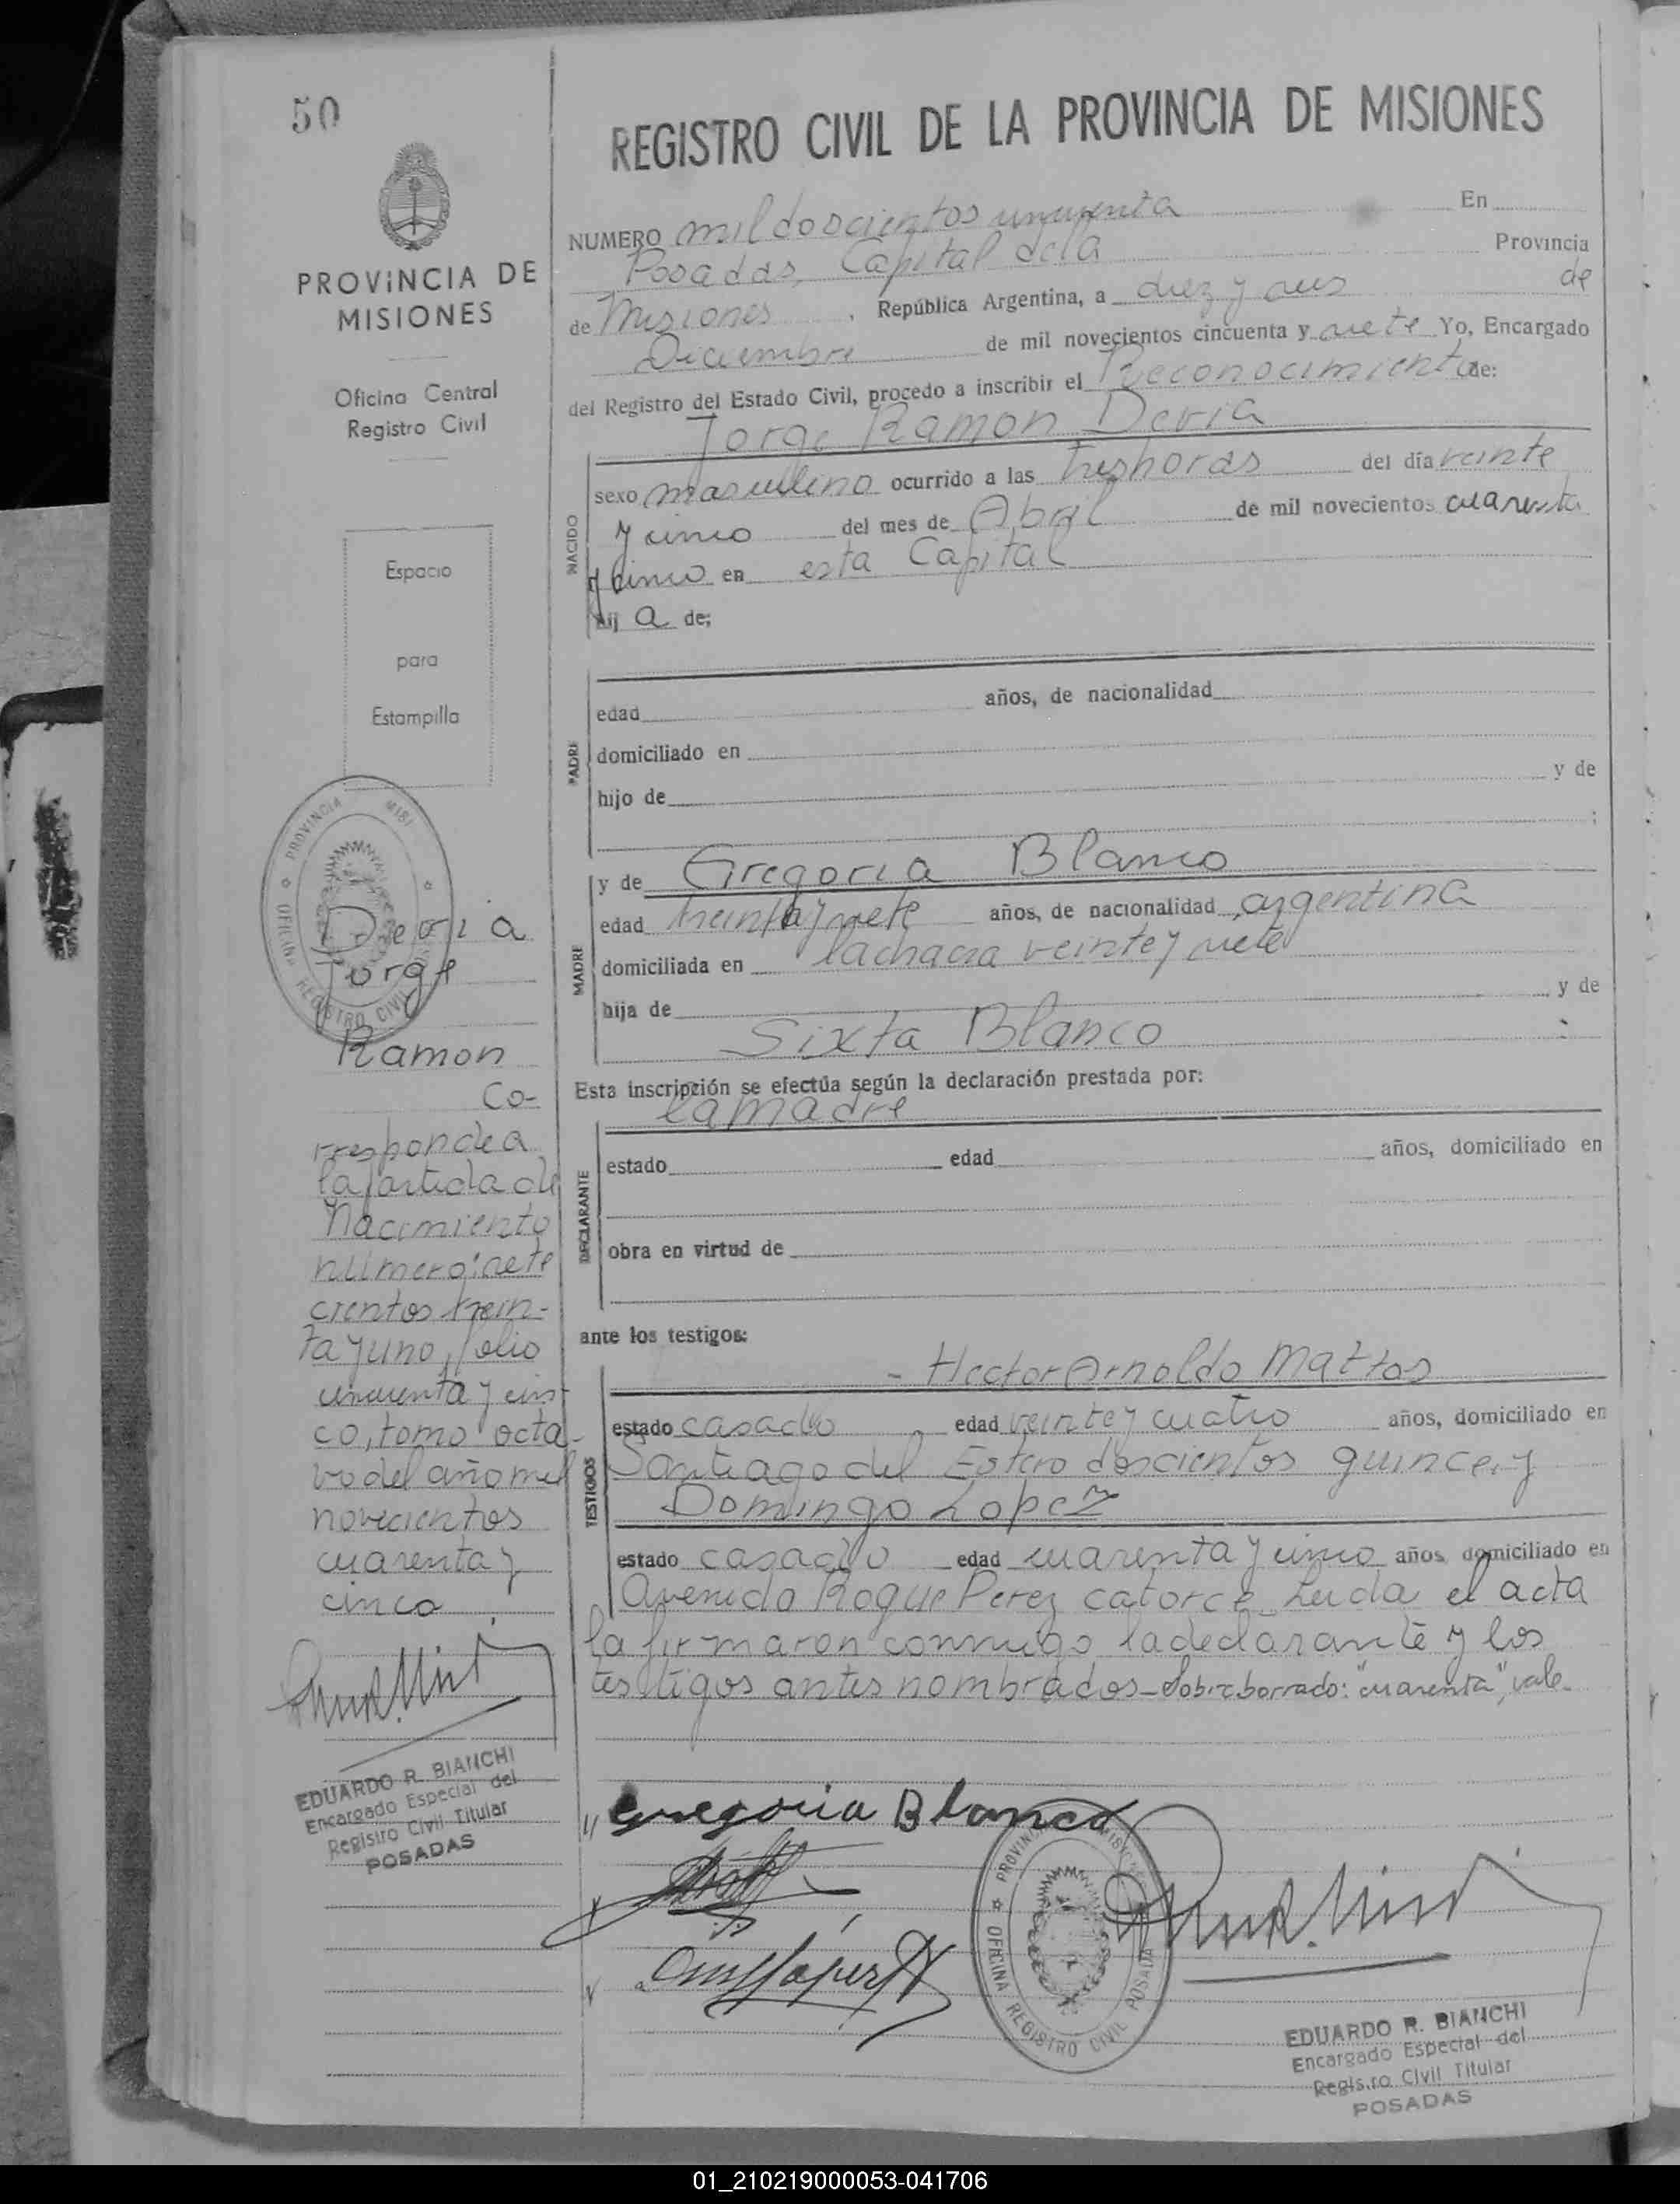 50
PROVINCIA DE
MISIONES
Oficina Central
Registro Civil
Espacio
para
Estampilla
PROVINCIA MISI
OFICINA REGISTRO CIVIL
Devia
Jorge
Ramon
Co-
rresponde a
la partida de
Nacimiento
número: siete
cientos trein-
ta y uno, folio
cincuenta y cin-
co, tomo octa-
vo del año mil
novecientos
cuarenta y
cinco
EDUARDO R. BIANCHI
Encargado Especial del
Registro Civil Titular
POSADAS
REGISTRO CIVIL DE LA PROVINCIA DE MISIONES
NUMERO mil doscientos cincuenta En
Posadas, Capital de la Provincia
de Misiones, República Argentina, a diez y seis de
Diciembre de mil novecientos cincuenta y siete Yo, Encargado
del Registro del Estado Civil, procedo a inscribir el Reconocimiento de:
Jorge Ramon Devia
NACIDO
sexo masculino ocurrido a las tres horas del día veinte
y cinco del mes de Abril de mil novecientos cuarenta
y cinco en esta Capital
hij a de;
PADRE
edad años, de nacionalidad
domiciliado en
hijo de y de
;
MADRE
y de Gregoria Blanco
edad treinta y siete años, de nacionalidad argentina
domiciliada en la chacra veinte y siete
hija de y de
Sixta Blanco :
Esta inscripción se efectúa según la declaración prestada por:
la madre
DECLARANTE
estado edad años, domiciliado en
obra en virtud de
ante los testigos:
TESTIGOS
- Hector Arnoldo Mattos
estado casado edad veinte y cuatro años, domiciliado en
Santiago del Estero doscientos quince, y
Domingo Lopez
estado casado edad cuarenta y cinco años, domiciliado en
Avenida Roque Perez catorce. Leida el acta
la firmaron conmigo la declarante y los
testigos antes nombrados-Sobreborrado: "cuarenta", vale.
Gregoria Blanco
PROVINCIA MISIONES
OFICINA REGISTRO CIVIL POSADAS
EDUARDO R. BIANCHI
Encargado Especial del
Registro Civil Titular
POSADAS
01_210219000053-041706